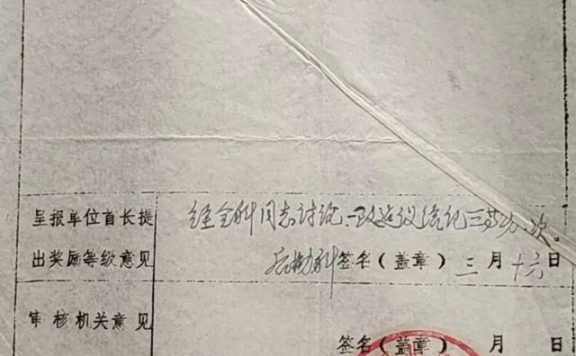 呈报单位首长提 经全科同志讨论一致建议给记三等功一次。
出奖励等级意见 后勤科 签名(盖章) 三月十六日
审核机关意见
签名(盖章) 月 日